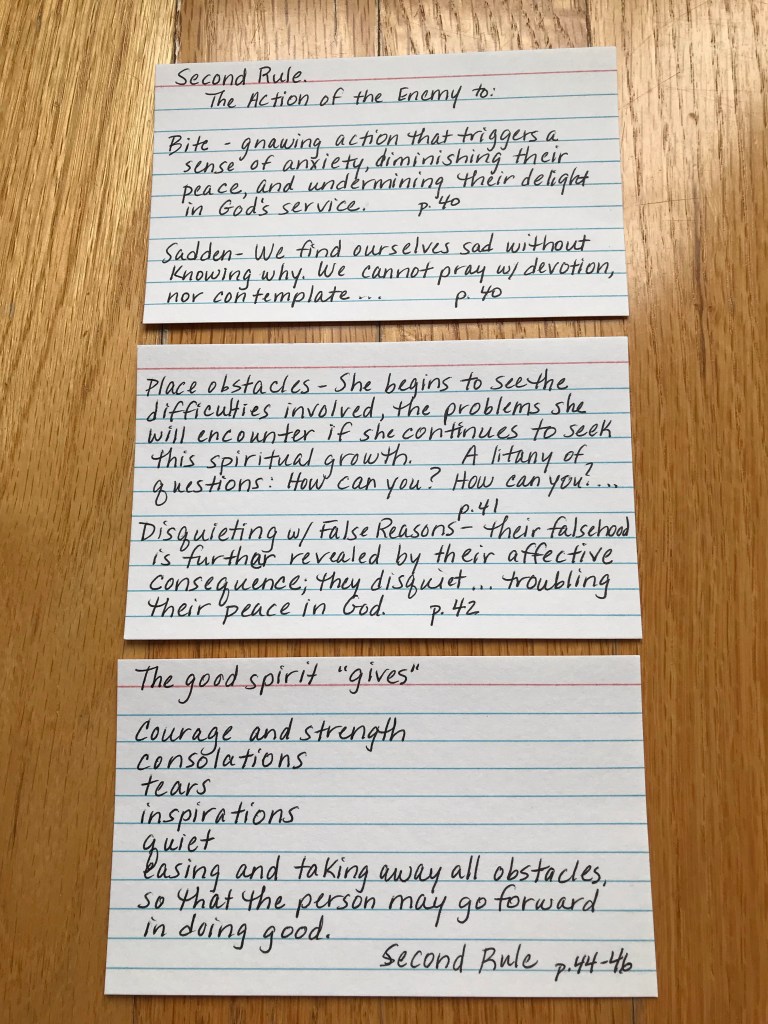 Second Rule.
The Action of the Enemy to:
Bite - gnawing action that triggers a
sense of anxiety, diminishing their
peace, and undermining their delight
in God's service. p. 40
Sadden - We find ourselves sad without
knowing why. We cannot pray w/ devotion,
nor contemplate... p. 40
Place obstacles - She begins to see the
difficulties involved, the problems she
will encounter if she continues to seek
this spiritual growth. A litany of
questions: How can you? How can you?...
p. 41
Disquieting w/ False Reasons - their falsehood
is further revealed by their affective
consequence; they disquiet... troubling
their peace in God. p. 42
The good spirit "gives"
Courage and strength
consolations
tears
inspirations
quiet
easing and taking away all obstacles,
so that the person may go forward
in doing good.
Second Rule p. 44-46